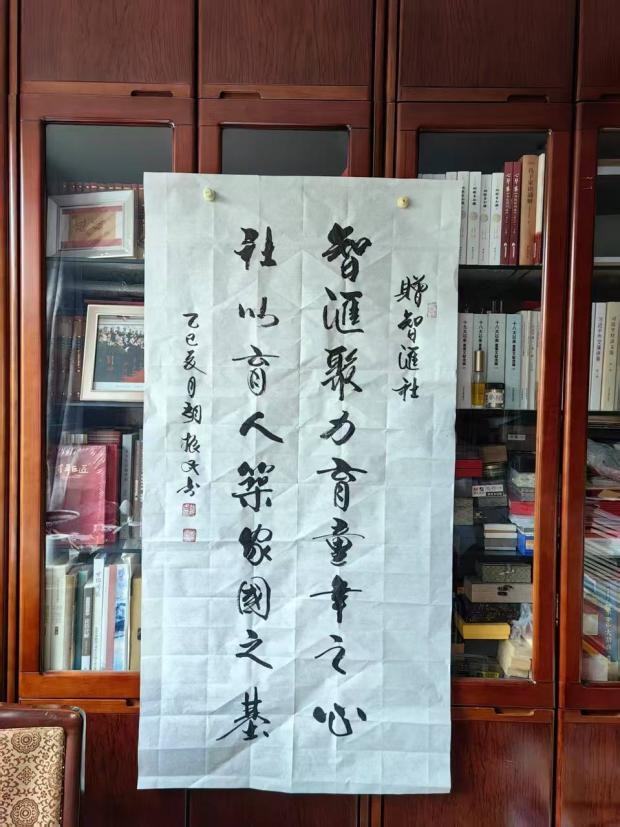 贈智滙社
智滙聚力育童年之心
社以育人築家國之基
乙巳夏月胡振民书